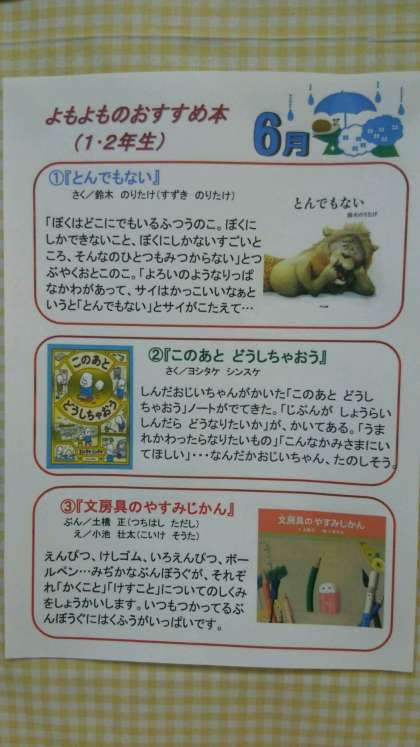 よもよものおすすめ本
(1・2年生)
6月
①『とんでもない』
さく／鈴木 のりたけ(すずき のりたけ)
「ぼくはどこにでもいるふつうのこ。ぼくに
しかできないこと、ぼくにしかないすごいと
ころ、そんなのひとつもみつからない」とつ
ぶやくおとこのこ。「よろいのようなりっぱ
なかわがあって、サイはかっこいいなぁと
いうと「とんでもない」とサイがこたえて…
とんでもない
鈴木のりたけ
②『このあと どうしちゃおう』
さく／ヨシタケ シンスケ
しんだおじいちゃんがかいた「このあと どうし
ちゃおう」ノートがでてきた。「じぶんが しょうらい
しんだら どうなりたいか」が、かいてある。「うま
れかわったらなりたいもの」「こんなかみさまにい
てほしい」・・・なんだかおじいちゃん、たのしそう。
このあと
どうしちゃおう
ヨシタケシンスケ
③『文房具のやすみじかん』
ぶん／土橋 正(つちはし ただし)
え／小池 壮太(こいけ そうた)
えんぴつ、けしゴム、いろえんぴつ、ボー
ルペン…みぢかなぶんぼうぐが、それぞ
れ「かくこと」「けすこと」についてのしくみ
をしょうかいします。いつもつかってるぶ
んぼうぐにはくふうがいっぱいです。
文房具のやすみじかん